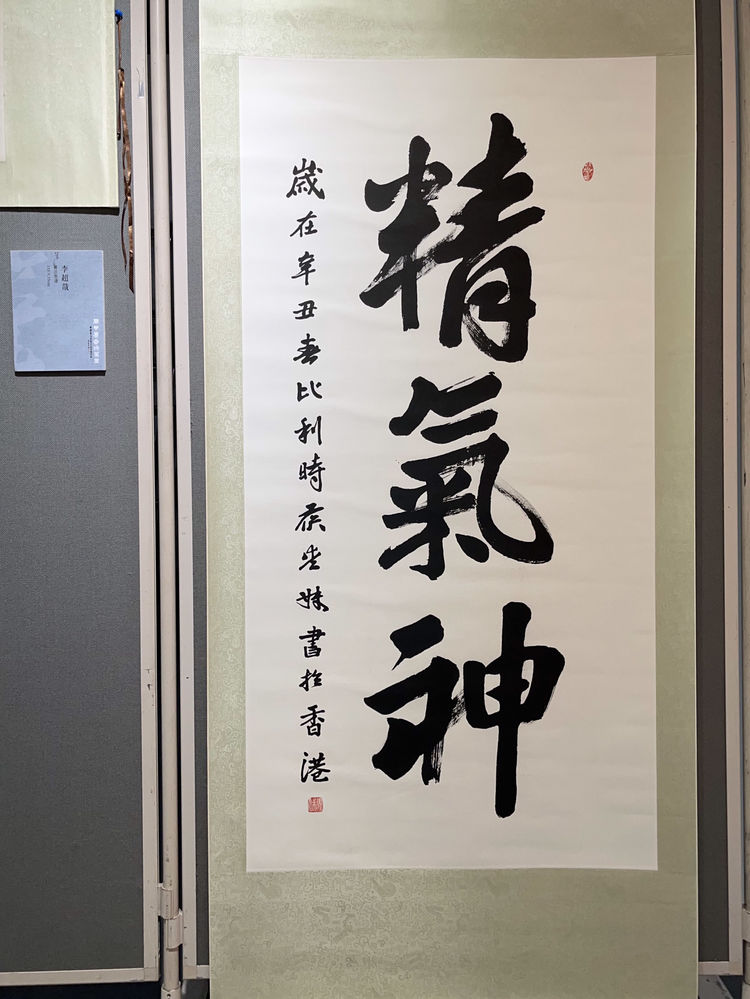 精氣神
歲在辛丑春比利時侯坐妹書於香港
李超哉